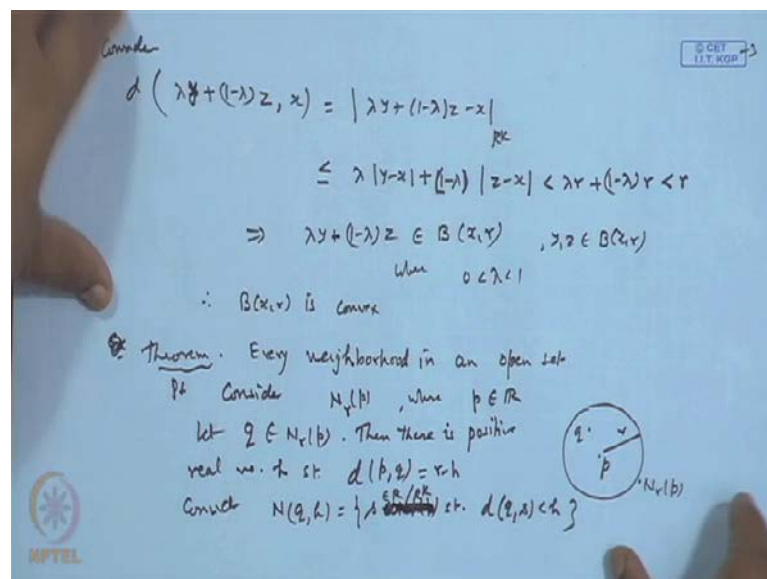 Consider
© CET
I.I.T. KGP
d ( λy + (1-λ)z , x ) = | λy + (1-λ)z - x |
RK
≤ λ |y-x| + (1-λ) |z-x| < λr + (1-λ)r < r
⇒ λy + (1-λ)z ∈ B(x,r) , y,z ∈ B(x,r)
when 0 < λ < 1
∴ B(x,r) is convex
Theorem. Every neighborhood in an open set
Pf Consider N_r(p) , where p ∈ R
Let q ∈ N_r(p). Then there is positive
real no. h st. d(p,q) = r-h
q r
p
N_r(p)
∈ R/RK
Consider N(q,h) = { s st. d(q,s) < h }
NPTEL